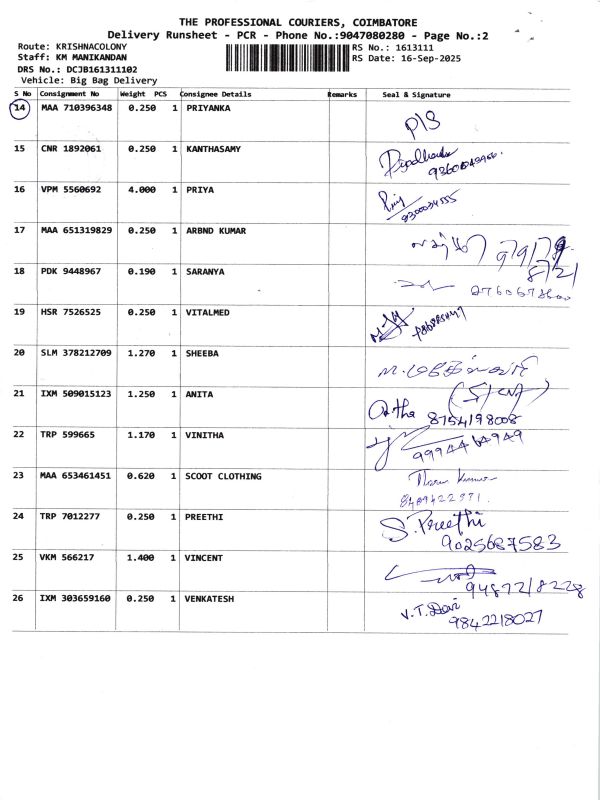 THE PROFESSIONAL COURIERS, COIMBATORE
Delivery Runsheet - PCR - Phone No.:9047080280 - Page No.:2
Route: KRISHNACOLONY
RS No.: 1613111
Staff: KM MANIKANDAN
RS Date: 16-Sep-2025
DRS No.: DCJB161311102
Vehicle: Big Bag Delivery
S No Consignment No Weight PCS Consignee Details Remarks Seal & Signature
14 MAA 710396348 0.250 1 PRIYANKA
P/S
15 CNR 1892061 0.250 1 KANTHASAMY
16 VPM 5560692 4.000 1 PRIYA
Priy
9300034555
17 MAA 651319829 0.250 1 ARBND KUMAR
18 PDK 9448967 0.190 1 SARANYA
19 HSR 7526525 0.250 1 VITALMED
20 SLM 378212709 1.270 1 SHEEBA
21 IXM 509015123 1.250 1 ANITA
8754198008
22 TRP 599665 1.170 1 VINITHA
9994464949
23 MAA 653461451 0.620 1 SCOOT CLOTHING
8489422971
24 TRP 7012277 0.250 1 PREETHI
S. Preethi
9025687583
25 VKM 566217 1.400 1 VINCENT
9487218228
26 IXM 303659160 0.250 1 VENKATESH
V.T. Devi
9842218027